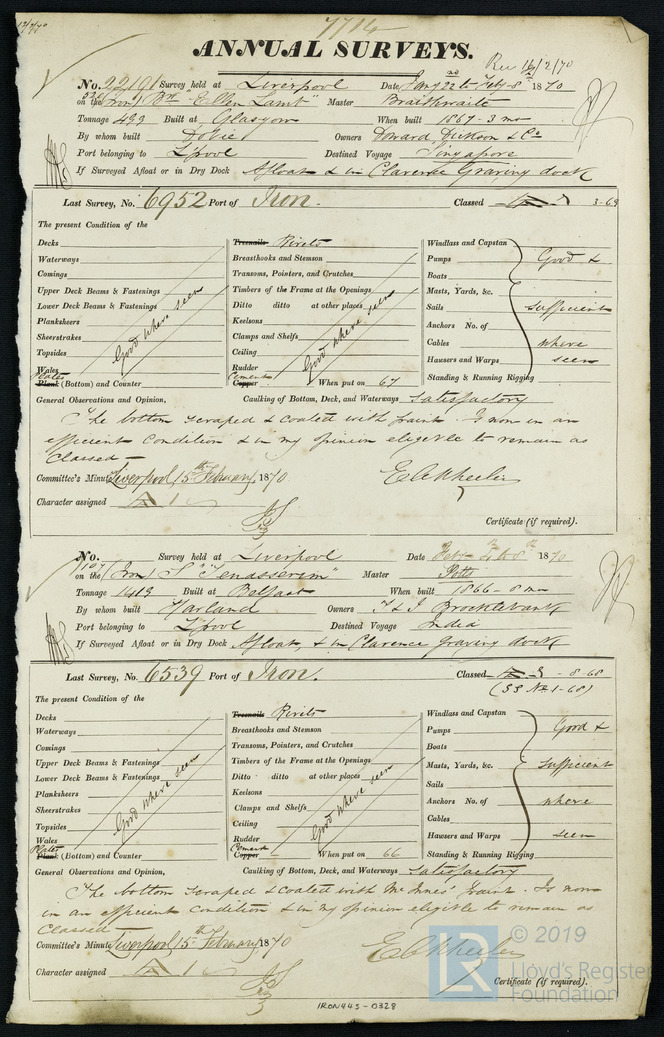 7714
ANNUAL SURVEYS.
Rec 16/2/70
No. 22191 Survey held at Liverpool Date Jany 22nd to Feby 8th 1870
on the Iron Bk "Ellen Lamb" Master Braithwaite
Tonnage 499 Built at Glasgow When built 1867 - 3 mo
By whom built Dobie Owners Edward Dickson & Co
Port belonging to L'pool Destined Voyage Singapore
If Surveyed Afloat or in Dry Dock Afloat & in Clarence Graving dock
Last Survey, No. 6952 Port of Iron. Classed A 3-69
The present Condition of the
Decks
Waterways
Comings
Upper Deck Beams & Fastenings
Lower Deck Beams & Fastenings
Planksheers
Sheerstrakes
Topsides
Wales
Plates
Plank (Bottom) and Counter
Good where seen
Treenails Rivets
Breasthooks and Stemson
Transoms, Pointers, and Crutches
Timbers of the Frame at the Openings
Ditto ditto at other places
Keelsons
Clamps and Shelfs
Ceiling
Rudder
Cement
Copper When put on 67
Good where seen
Windlass and Capstan
Pumps Good &
Boats
Masts, Yards, &c.
Sails sufficient
Anchors No. of
Cables where
Hausers and Warps seen
Standing & Running Rigging
General Observations and Opinion, Caulking of Bottom, Deck, and Waterways Satisfactory
The bottom scraped & coated with paint. Is now in an
efficient condition & in my opinion eligible to remain as
Classed -
Committee's Minute Liverpool 15th February 1870
Character assigned A 1
Certificate (if required).
No. Survey held at Liverpool Date Feby 4 to 8th 1870
on the Iron S "Tenasserim" Master Potts
Tonnage 1419 Built at Belfast When built 1866 - 8 mo
By whom built Harland Owners T & J Brocklebank
Port belonging to L'pool Destined Voyage India
If Surveyed Afloat or in Dry Dock Afloat, & in Clarence graving dock
Last Survey, No. 6539 Port of Iron. Classed A - 8-68
(SS No 1-68)
The present Condition of the
Decks
Waterways
Comings
Upper Deck Beams & Fastenings
Lower Deck Beams & Fastenings
Planksheers
Sheerstrakes
Topsides
Wales
Plates
Plank (Bottom) and Counter
Good where seen
Treenails Rivets
Breasthooks and Stemson
Transoms, Pointers, and Crutches
Timbers of the Frame at the Openings
Ditto ditto at other places
Keelsons
Clamps and Shelfs
Ceiling
Rudder
Cement
Copper When put on 66
Good where seen
Windlass and Capstan
Pumps Good &
Boats
Masts, Yards, &c. sufficient
Sails
Anchors No. of where
Cables
Hawsers and Warps seen
Standing & Running Rigging
General Observations and Opinion, Caulking of Bottom, Deck, and Waterways Satisfactory
The bottom scraped & coated with McInnes' paint. Is now
in an efficient condition & in my opinion eligible to remain as
Classed -
Committee's Minute Liverpool 15th February 1870
Character assigned A 1
Certificate (if required).
IRON445-0328
© 2019
LR
Lloyd's Register
Foundation